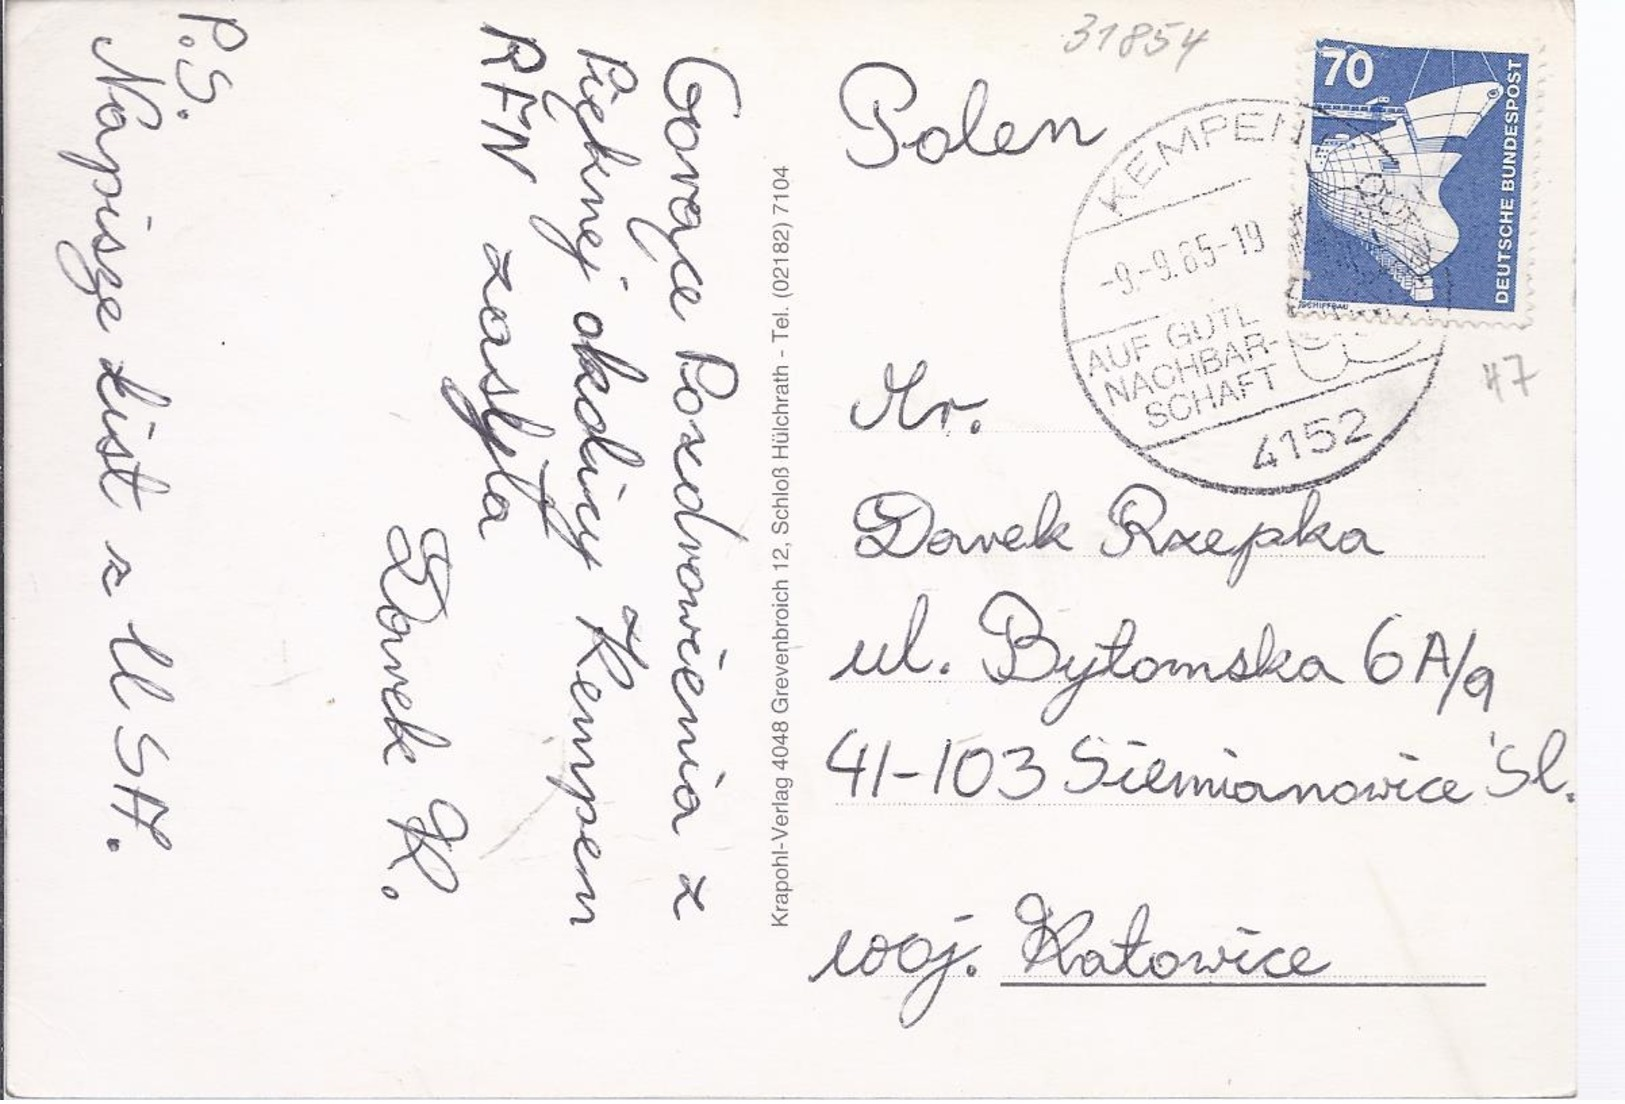 Gorące Pozdrowienia z
Pięknej okolicy Kempen
RFN zasyła
Darek K.
P.S.
Napisze list z USA.
Krapohl-Verlag 4048 Grevenbroich 12, Schloß Hülchrath - Tel. (02182) 7104
31854
Polen
70
DEUTSCHE BUNDESPOST
SCHIFFBAU
KEMPEN
-9.-9.85-19
AUF GUTE
NACHBAR-
SCHAFT
4152
47
Hr.
Darek Rzepka
ul. Bytomska 6A/9
41-103 Siemianowice Śl.
woj. Katowice